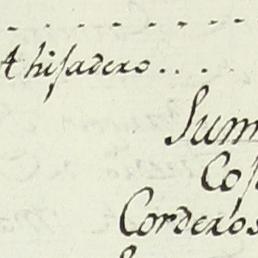 Ahijadero....
Sum
Cos
Corderos